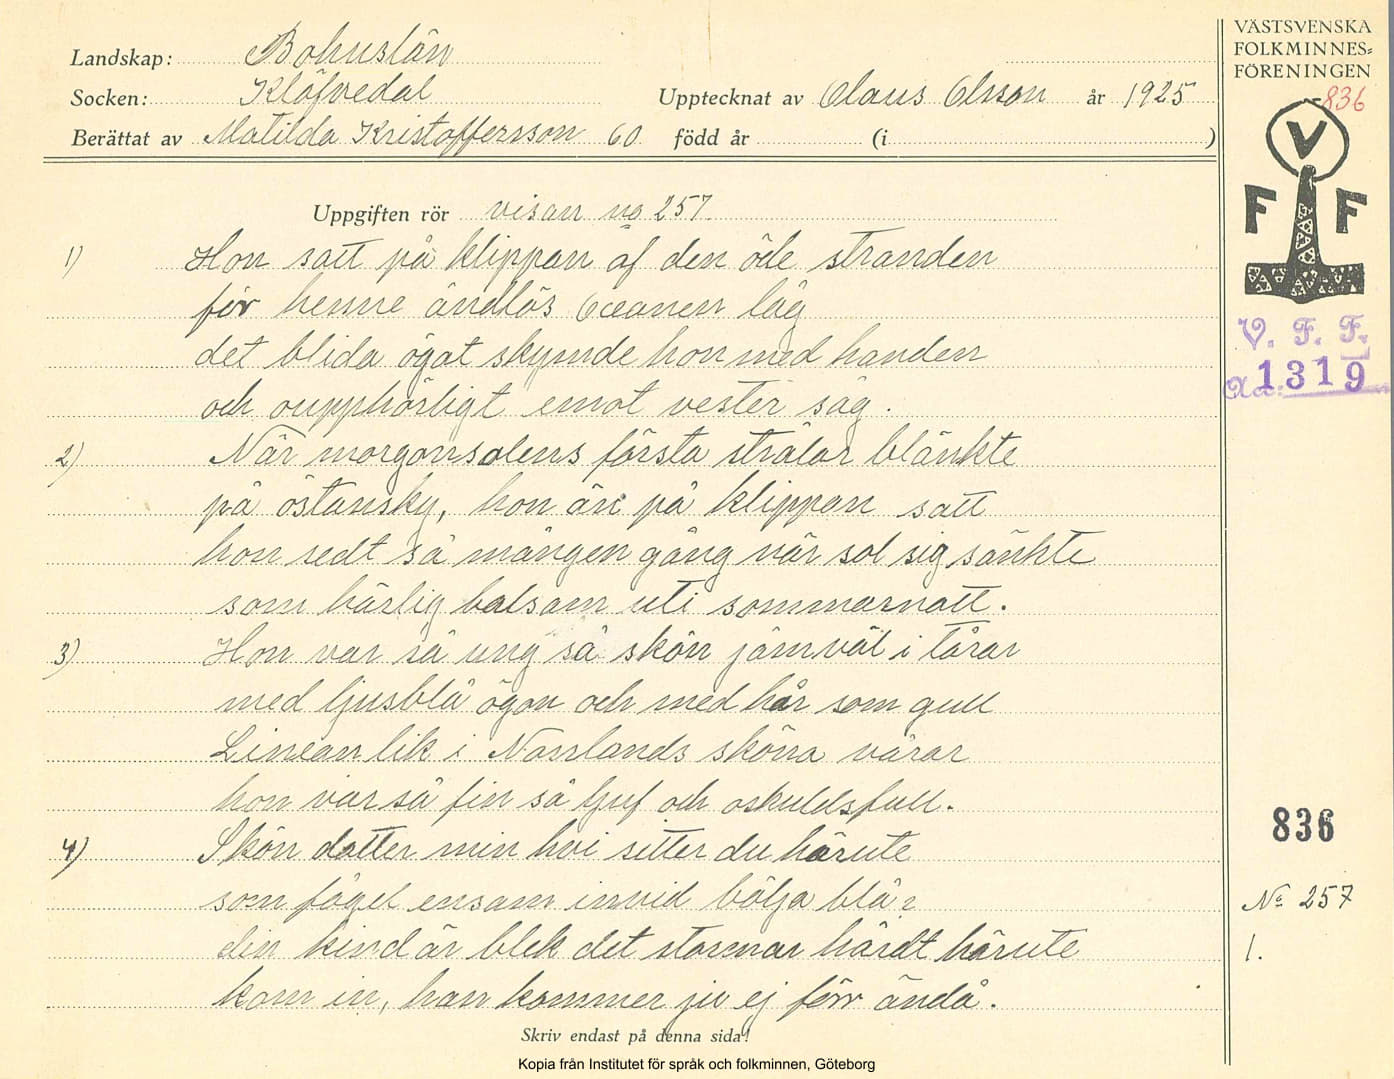 Landskap: Bohuslän
Socken: Klöfvedal
Upptecknat av Claus Olsson år 1925
Berättat av Matilda Kristoffersson 60 född år (i )
VÄSTSVENSKA
FOLKMINNES-
FÖRENINGEN
836
V
F F
V. F. F.
Aa: 1319
Uppgiften rör visan no 257.
1) Hon satt på klippan af den öde stranden
för henne ändlös Oceanen låg
det blida ögat skymde hon med handen
och oupphörligt emot vester såg.
2) När morgonsolens första strålar blänkte
på östansky, hon än på klippan satt
hon sedt så mången gång när sol sig sänkte
som härlig balsam uti sommarnatt.
3) Hon var så ung så skön jämväl i tårar
med ljusblå ögon och med hår som gull
Linnean lik i Norrlands sköna vårar
hon var så fin så ljuf och oskuldsfull.
4) Skön dotter min hvi sitter du härute
som fågel ensam invid bölja blå?
din kind är blek det stormar hårdt härute
kom in, han kommer ju ej förr ändå.
836
No 257
1.
Skriv endast på denna sida!
Kopia från Institutet för språk och folkminnen, Göteborg